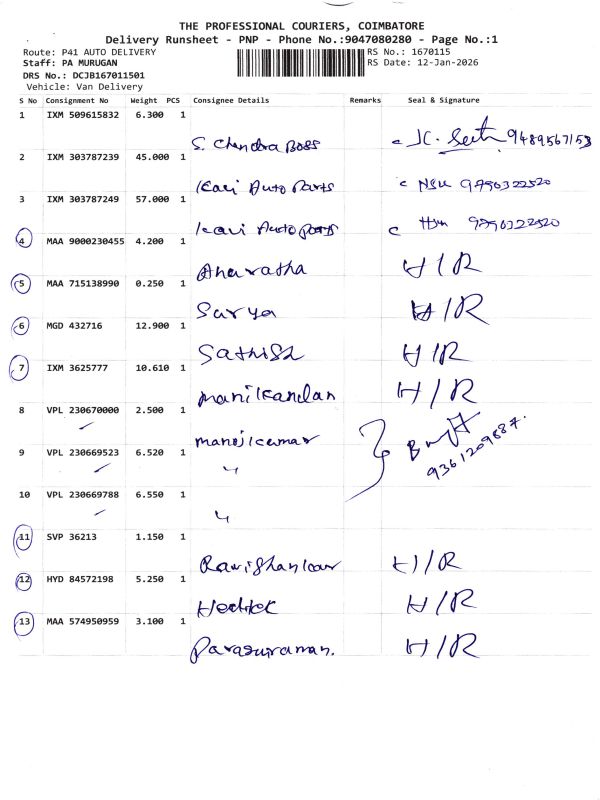 THE PROFESSIONAL COURIERS, COIMBATORE
Delivery Runsheet - PNP - Phone No.:9047080280 - Page No.:1
Route: P41 AUTO DELIVERY
Staff: PA MURUGAN
DRS No.: DCJB167011501
Vehicle: Van Delivery
RS No.: 1670115
RS Date: 12-Jan-2026
S No Consignment No Weight PCS Consignee Details Remarks Seal & Signature
1 IXM 509615832 6.300 1
S. Chandra Boss 9489567153
2 IXM 303787239 45.000 1
Kavi Auto Parts 9790322520
3 IXM 303787249 57.000 1
Kavi Auto Parts 9790322520
4 MAA 9000230455 4.200 1
Anuratha H/R
5 MAA 715138990 0.250 1
Surya H/R
6 MGD 432716 12.900 1
Sathish H/R
7 IXM 3625777 10.610 1
Manikandan H/R
8 VPL 230670000 2.500 1
Manojkumar
9 VPL 230669523 6.520 1
〃 9361209887.
10 VPL 230669788 6.550 1
〃
11 SVP 36213 1.150 1
Ravishankar H/R
12 HYD 84572198 5.250 1
H/R
13 MAA 574950959 3.100 1
Parasuraman. H/R